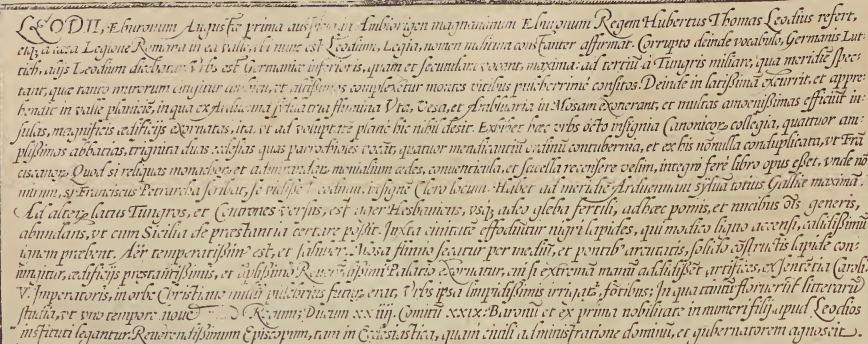 LEODII, Eburonum Augustæ prima auspicia in Ambiorigen magnanimum Eburonum Regem Hubertus Thomas Leodius refert,
eiq; a cæsa Legione Romana in ea valle, ubi nunc est Leodium, Legia, nomen inditum constanter affirmat. Corrupto deinde vocabulo, Germanis Lut:
tich, alijs Leodium dicebatur. Vrbs est Germaniæ inferioris, quam et secundam vocant, maxima: ad tertiū a Tungris miliare, qua meridiē spec:
tant, quæ tanto murorum cingitur et altissimos complectitur montes vitibus pulcherrimè consitos. Deinde in latissimā excurrit, et appre:
hendit in valle planiciē, in qua ex Arduenna sylua tria flumina Vta, Vesa, et Ambluaria in Mosam exonerant, et multas amoenissimas efficiūt in:
sulas, magnificis ædificijs exornatas, ita, vt ad voluptatē planè hic nihil desit. Exhibet hæc vrbs octo insignia Canonicoꝝ collegia, quattuor am:
plissimas abbacias, trigínta duas ecclesias quas parrochiales vocāt, quatuor mendicantiū ordinū contubernia, et ex his nōnulla conduplicata, vt Frā
ciscanoꝝ. Quod si reliquas monachoꝝ, et admirandas monialium ædes, conventicula, et sacella recensere velim, integro ferè libro opus esset, vnde nō
mirum, si Franciscus Petrarcha scribat, se vidisse Leodium, insigne Clero locum. Habet ad meridiē Arduennam syluā totius Galliæ maximā.
Ad alterꝝ latus Tungros, et Centrones versus, est ager Hasbanicus, vsq; adeo gleba fertili, adhæc pomis, et nucibus oīs generis,
abundans, vt cum Sicilia de præstantia certare possit. Iuxta ciuitatē effodiūtur nigri lapides, qui modico ligno accensi, calidissimū
ignem præbent. Aër temperatissimꝰ est, et saluber. Mosa fluuio secatur per mediū, et pontibꝰ arcuatis, solido cōstructis lapide con:
iungitur, ædificijs præstantissimis, et aptissimo Reuerendissimi Palatio exornatur, cui si extremā manū addidisset artifices, ex sententia Caroli
V. Imperatoris, in orbe Christiano nullū pulchrius futurꝫ erat, Vrbs ipsa limpidissimis irrigatꝫ fōtibus; In qua tantū floruerūt litteraria
studia, vt vno tempore nouē Regum, Ducum xxiiij. Comitū xxix: Baronū et ex prima nobilitate innumeri filij apud Leodios
instituti legantur. Reuerendissimum Episcopum, tam in Ecclesiastica, quam ciuili administratione dominū, et gubernatorem agnoscit.